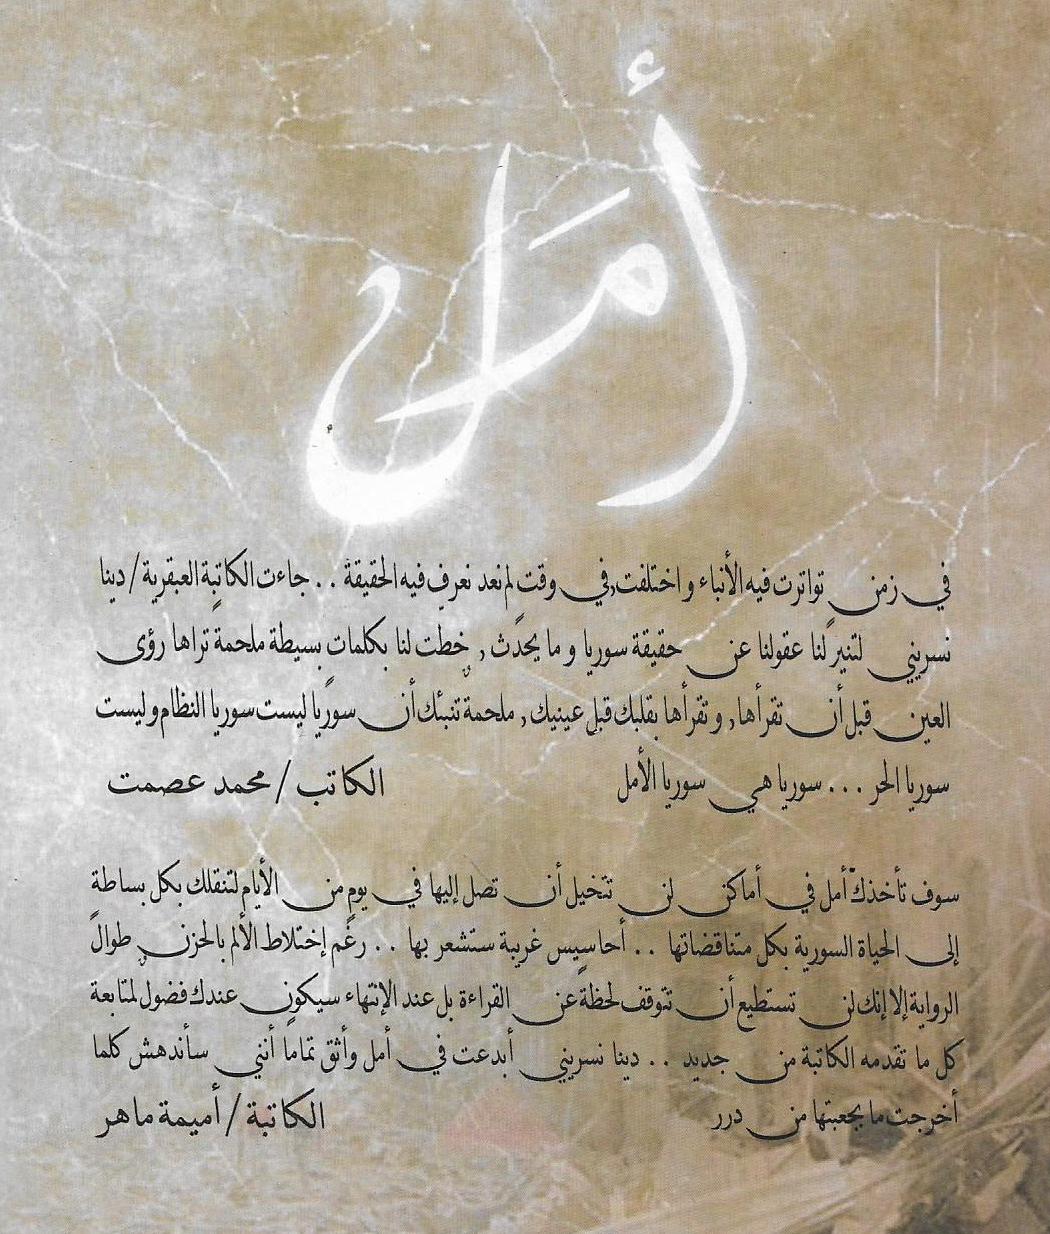 أمل
في زمن تواترت فيه الأنباء و اختلفت, في وقت لم نعد نعرف فيه الحقيقة . . جاءت الكاتبة العبقرية / دينا
نسريني لتنير لنا عقولنا عن حقيقة سوريا و ما يحدث , خطت لنا بكلمات بسيطة ملحمة تراها رؤى
العين قبل أن تقرأها, و تقرأها بقلبك قبل عينيك, ملحمة تنبئك أن سوريا ليست سوريا النظام و ليست
سوريا الحر . . . سوريا هي سوريا الأمل الكاتب / محمد عصمت
سوف تأخذك أمل في أماكن لن تتخيل أن تصل إليها في يوم من الأيام لتنقلك بكل بساطة
إلى الحياة السورية بكل متناقضاتها . . أحاسيس غريبة ستشعر بها . . رغم إختلاط الألم بالحزن طوال
الرواية إلا إنك لن تستطيع أن تتوقف لحظة عن القراءة بل عند الإنتهاء سيكون عندك فضول لمتابعة
كل ما تقدمه الكاتبة من جديد . . دينا نسريني أبدعت في أمل وأثق تماما أنني سأندهش كلما
أخرجت ما بجعبتها من درر الكاتبة / أميمة ماهر